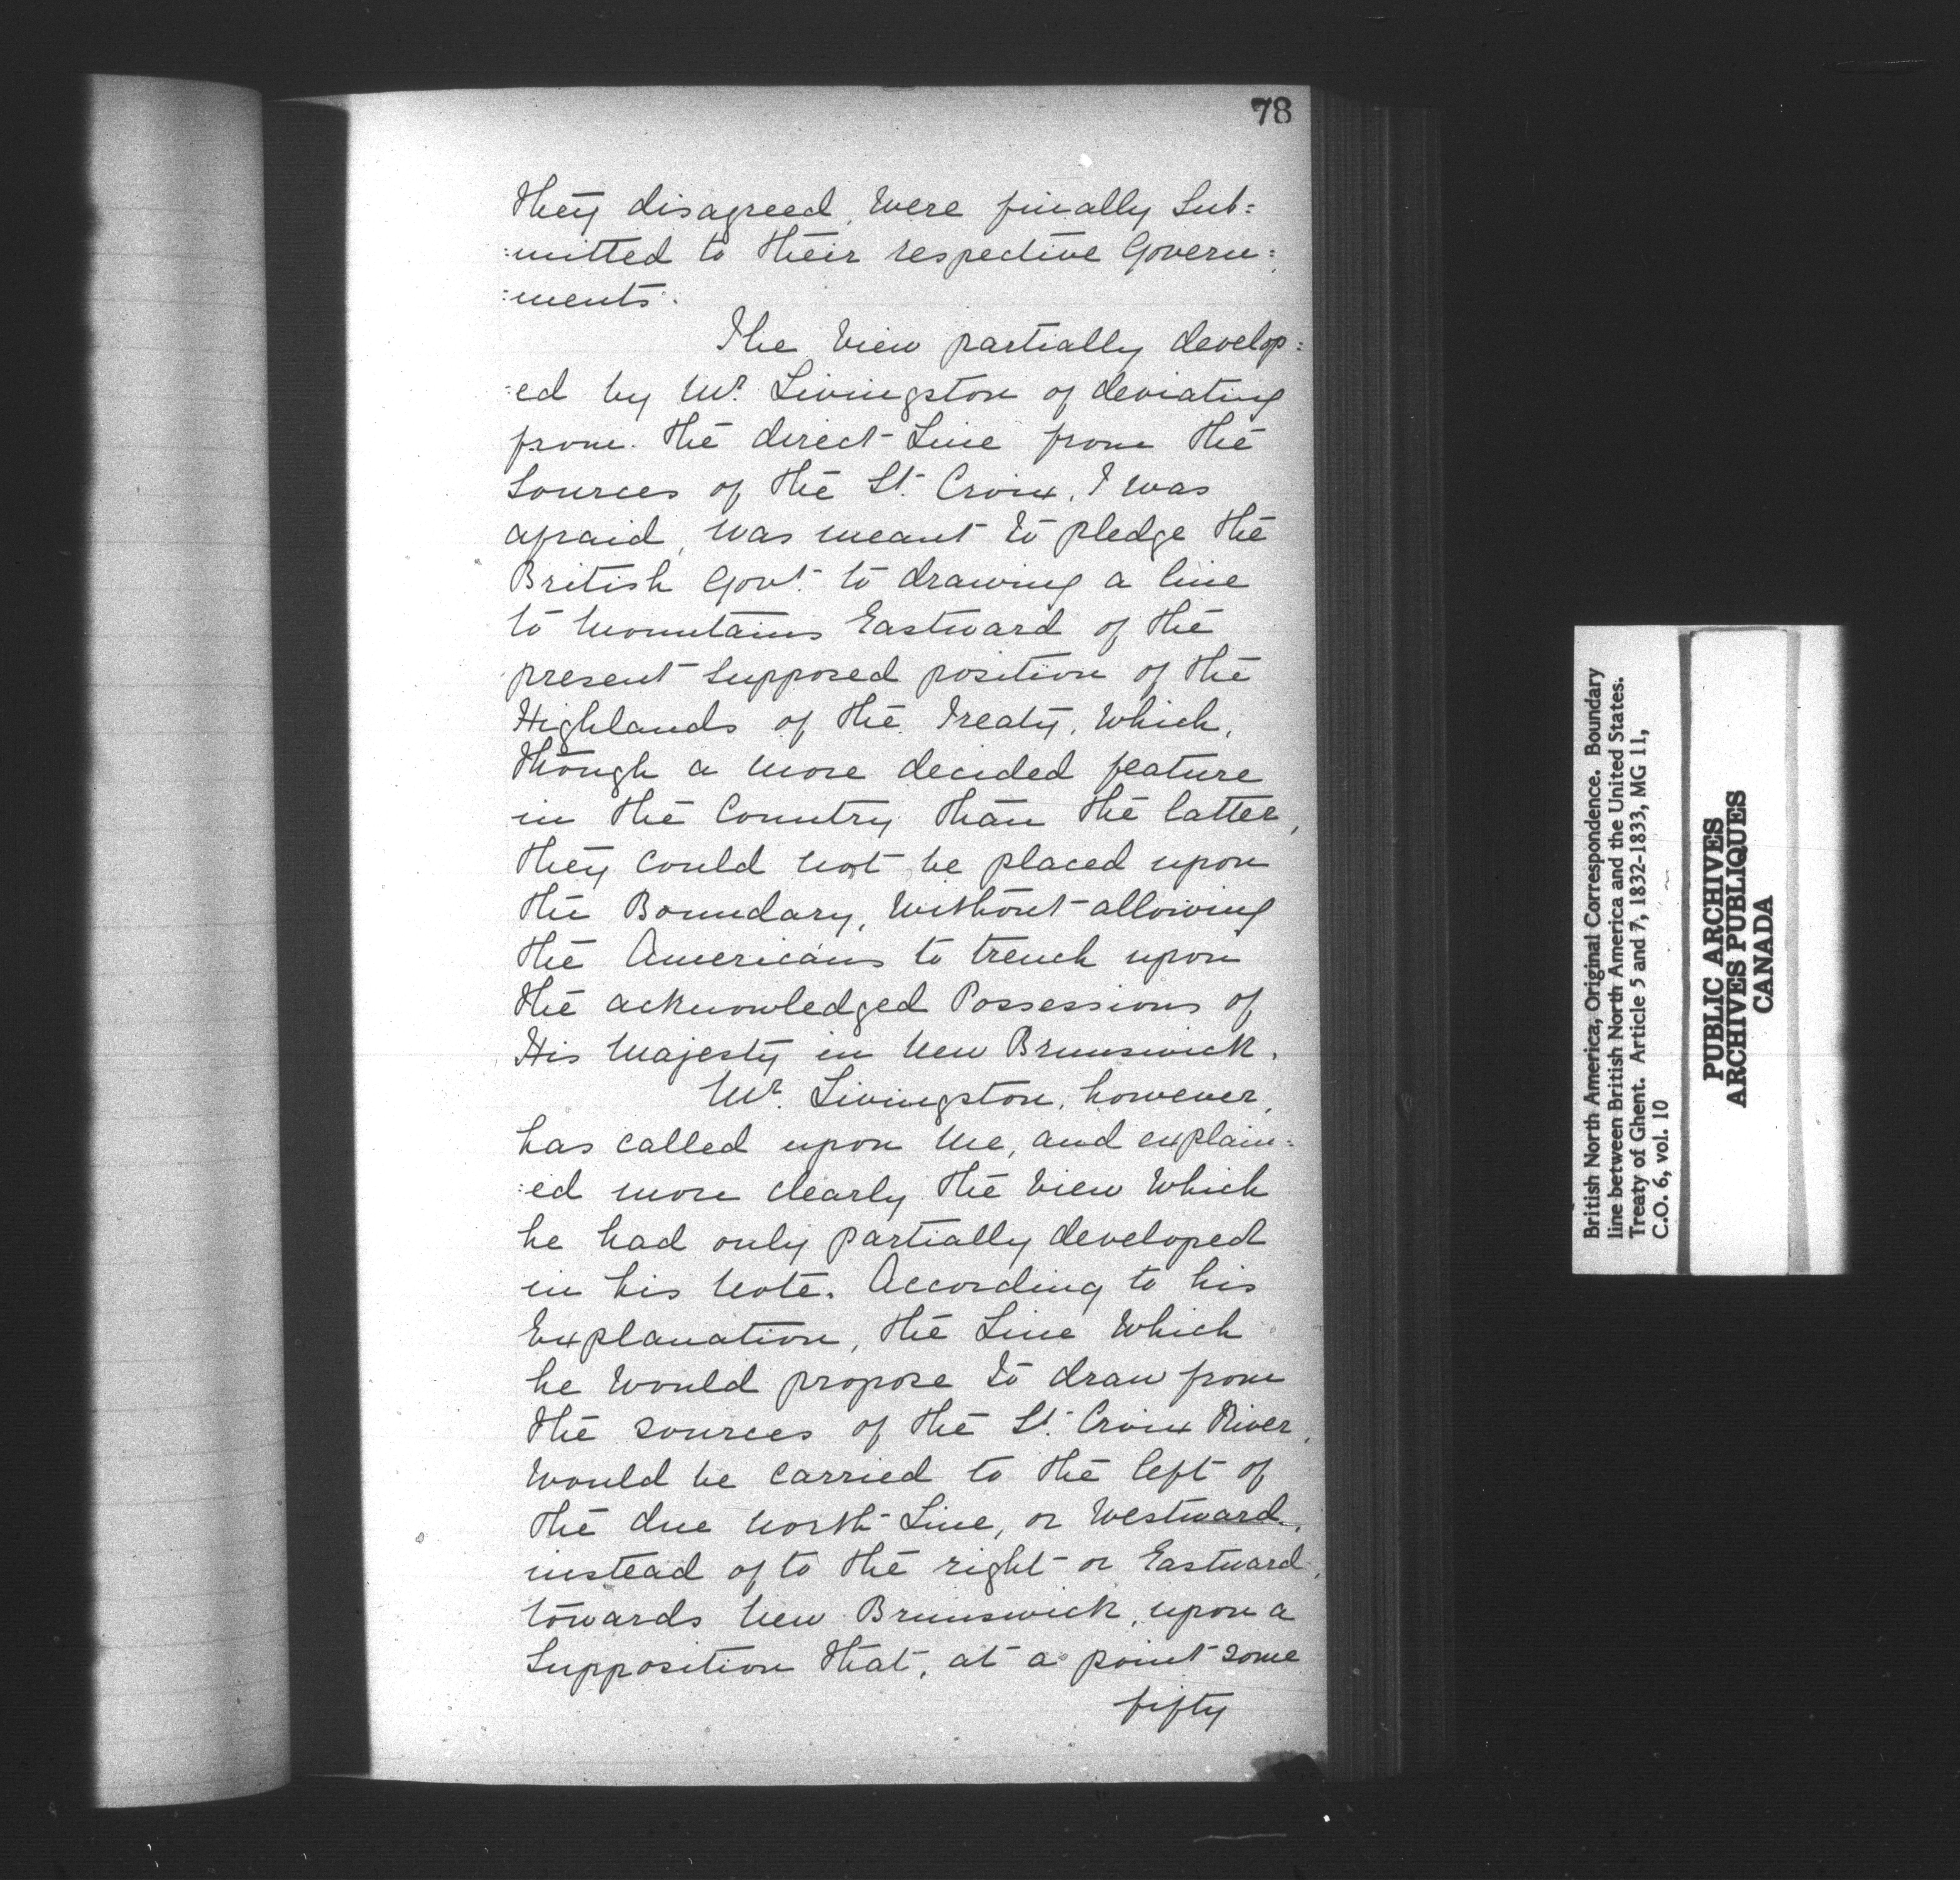 78
they disagreed, were finally Sub=
=mitted to their respective Govern=
=ments.
The View partially develop=
=ed by Mr. Livingston of deviating
from the direct Line from the
Sources of the St. Croix, I was
afraid, was meant to pledge the
British Govt. to drawing a line
to Mountains Eastward of the
present Supposed position of the
Highlands of the Treaty, Which,
though a more decided feature
in the Country than the latter,
they could not be placed upon
the Boundary, Without allowing
the Americans to trench upon
the acknowledged Possessions of
His Majesty in New Brunswick.
Mr. Livingston, however,
has called upon Me, and explain=
=ed more clearly the View Which
he had only partially developed
in his Note. According to his
Explanation, the Line Which
he Would propose to draw from
the sources of the St. Croix River,
Would be carried to the left of
the due North Line, or Westward,
instead of to the right or Eastward,
towards New Brunswick, upon a
Supposition that, at a point some
fifty
British North America, Original Correspondence. Boundary
line between British North America and the United States.
Treaty of Ghent. Article 5 and 7, 1832-1833, MG 11,
C.O. 6, vol. 10
PUBLIC ARCHIVES
ARCHIVES PUBLIQUES
CANADA